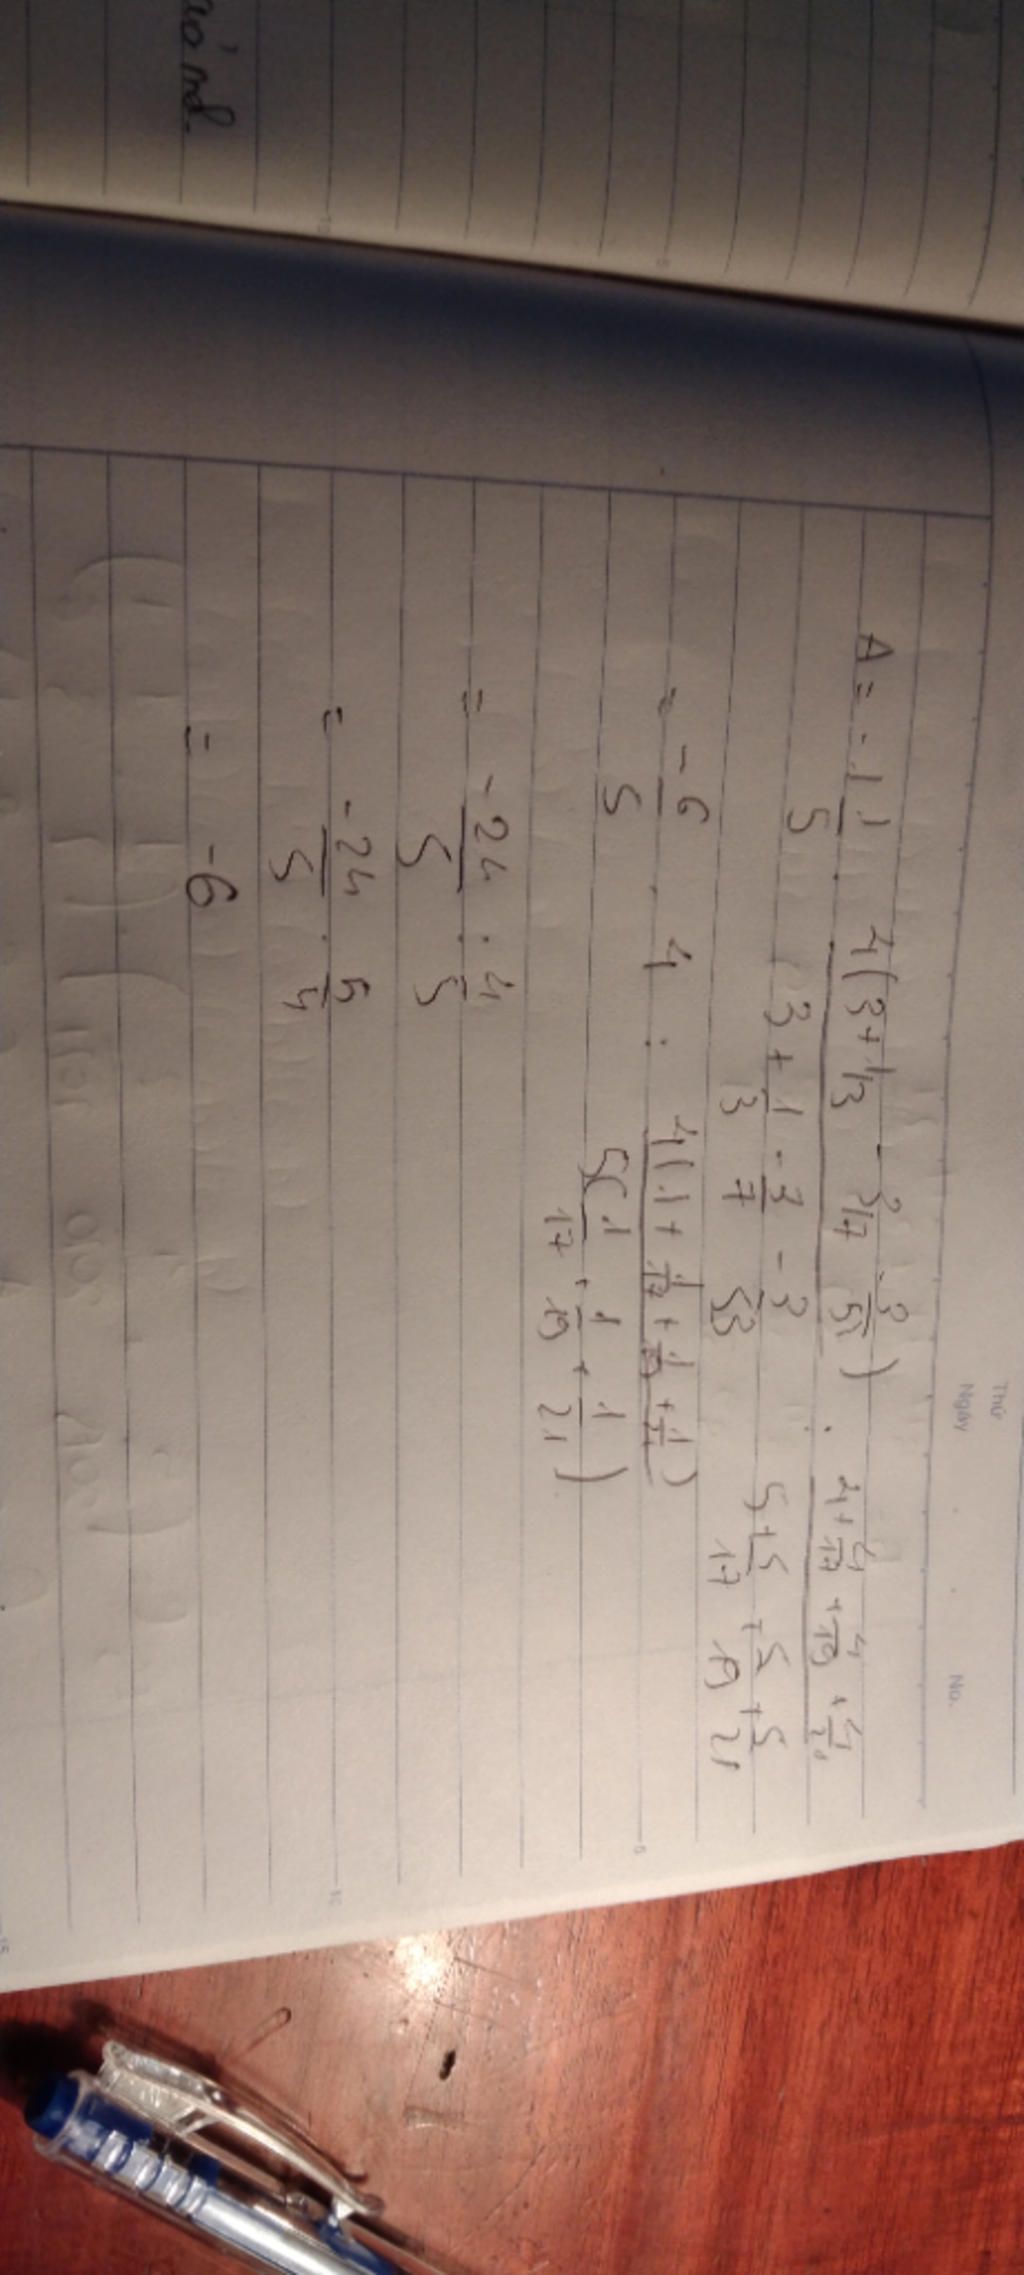 ưở md.
Thứ
Ngày
No.
A = -1 1/5 . 4(3 + 1/3 - 3/7 - 3/53) / (3 + 1/3 - 3/7 - 3/53) : (4 + 4/17 + 4/19 + 4/21) / (5 + 5/17 + 5/19 + 5/21)
= -6/5 . 4 : 4(1 + 1/17 + 1/19 + 1/21) / 5(1/17 + 1/19 + 1/21)
= -24/5 : 4/5
= -24/5 . 5/4
= -6